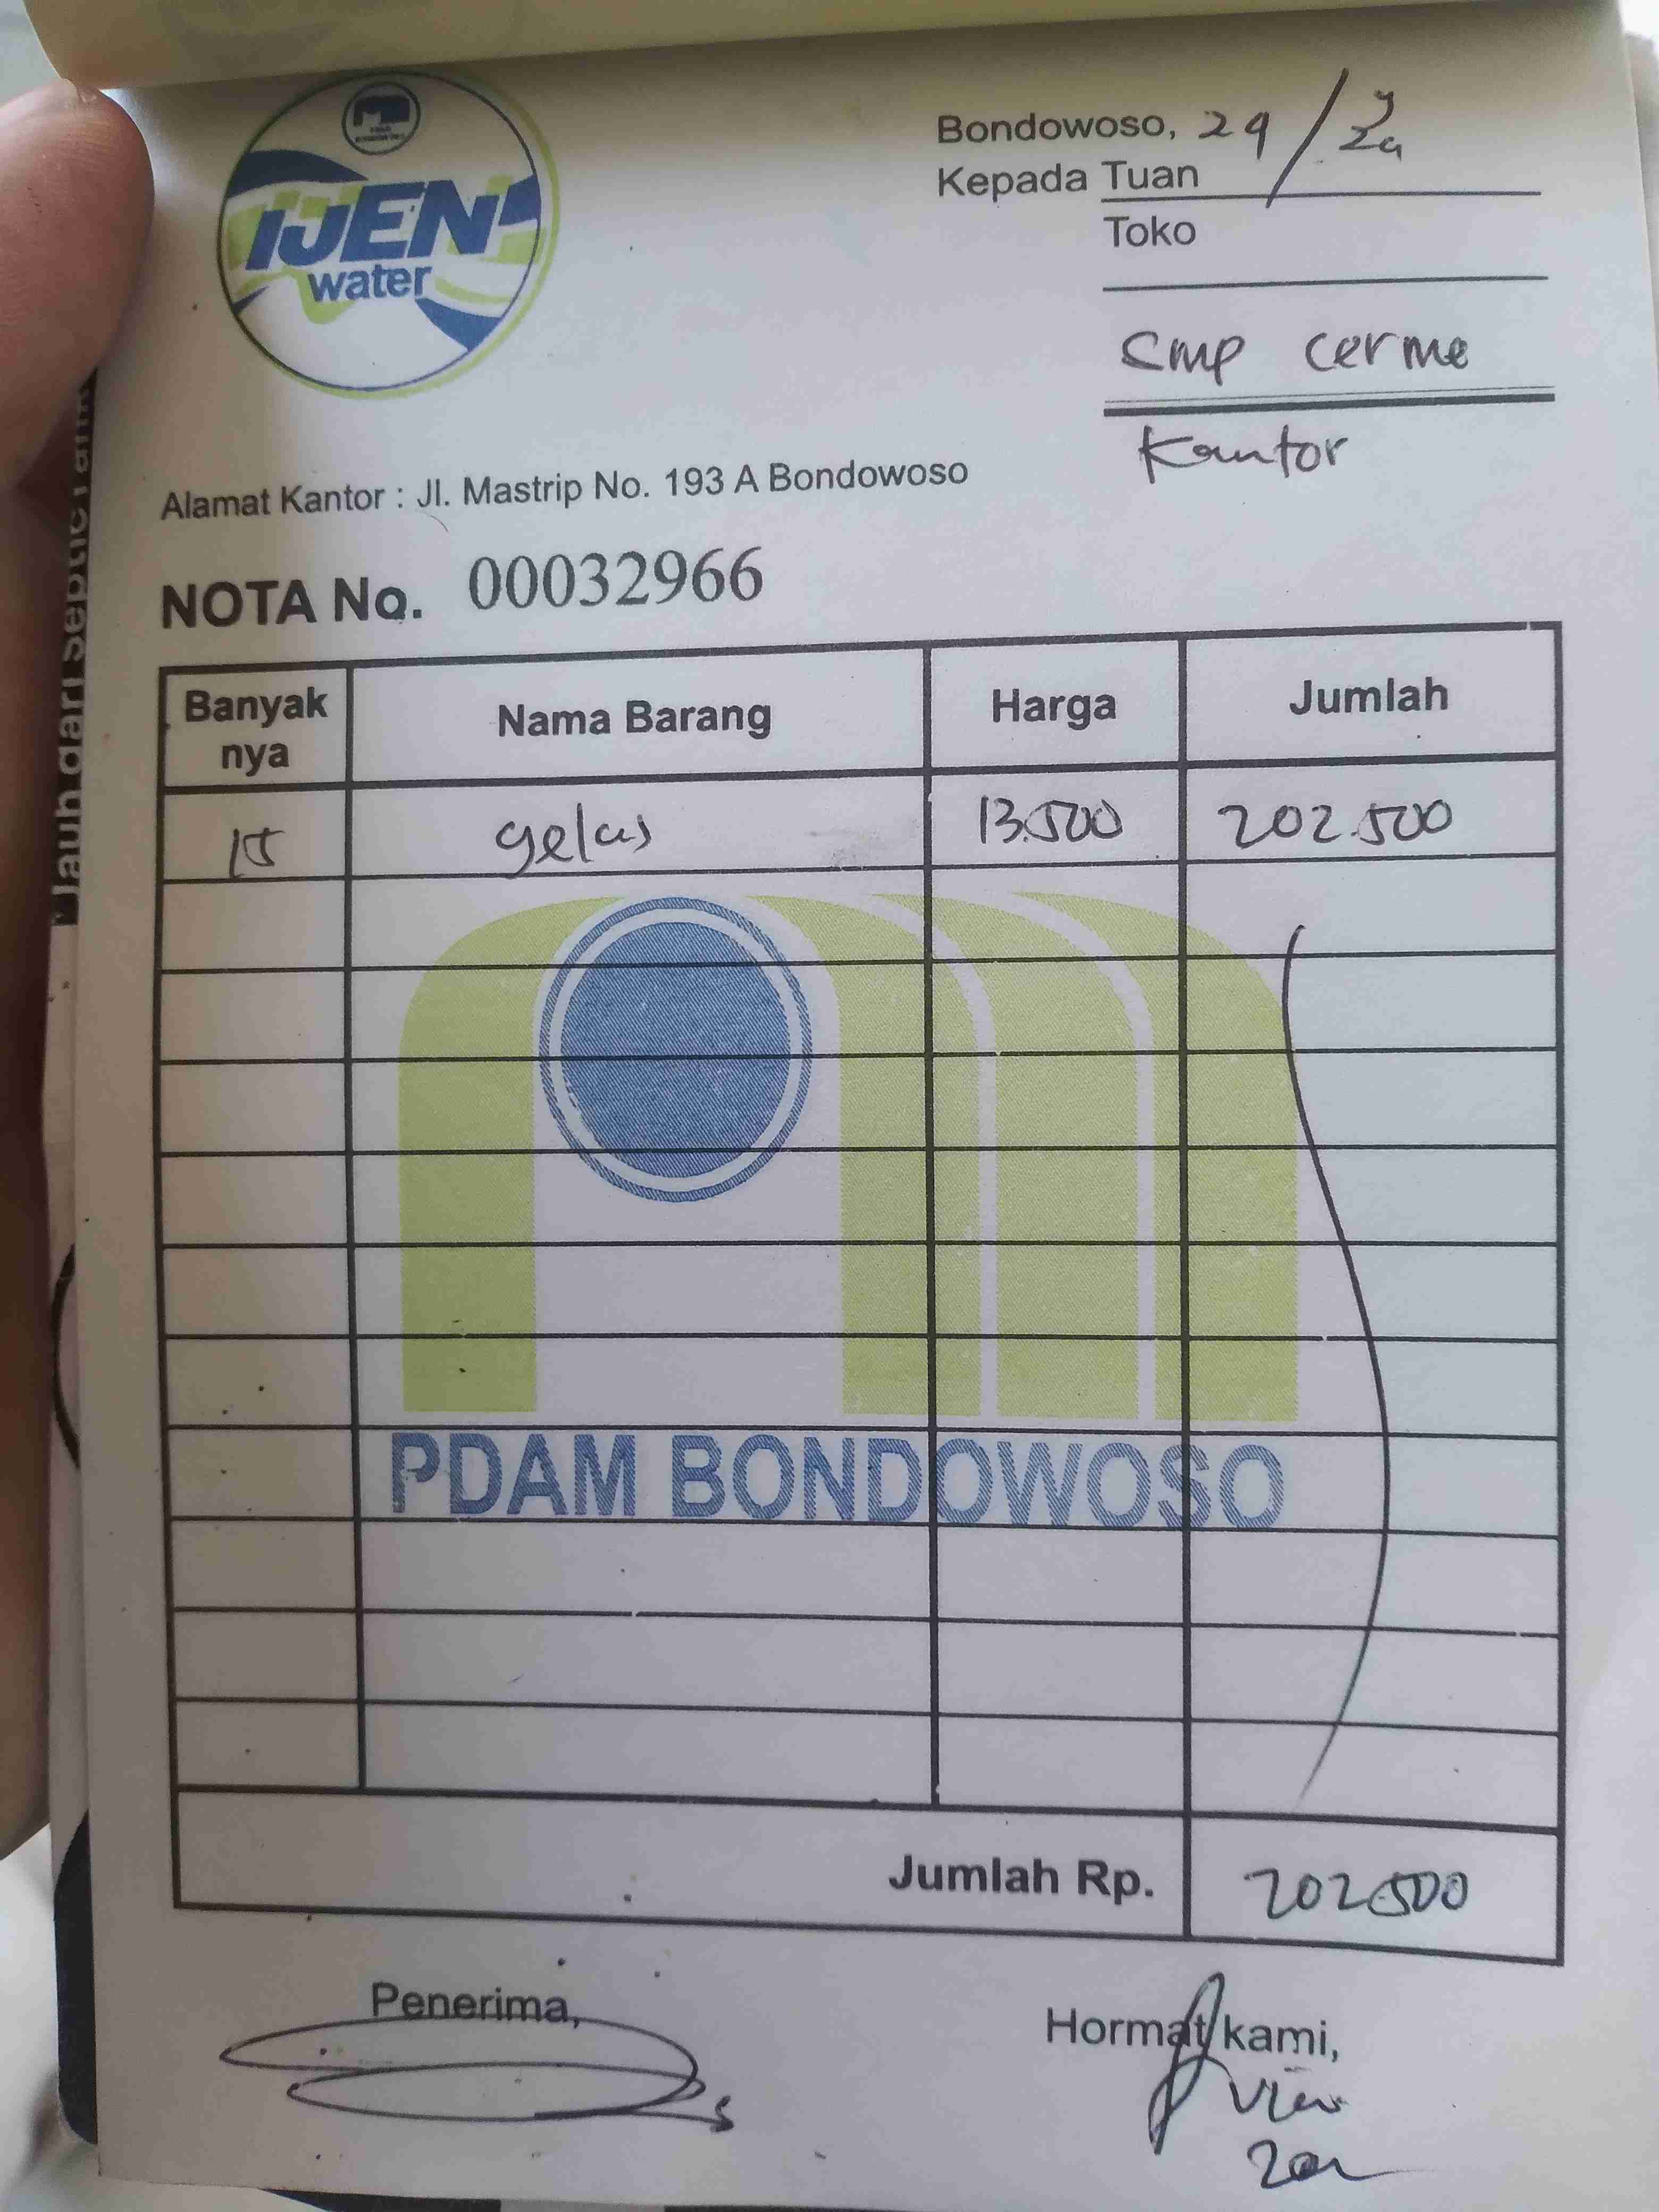 IJEN
water
Bondowoso, 29/
Kepada Tuan
Toko
Smp cerme
Kantor
Alamat Kantor : Jl. Mastrip No. 193 A Bondowoso
NOTA No. 00032966
Banyak nya Nama Barang Harga Jumlah
15 gelas 13.500 202.500
PDAM BONDOWOSO
Jumlah Rp. 202.500
Penerima,
Hormat kami,